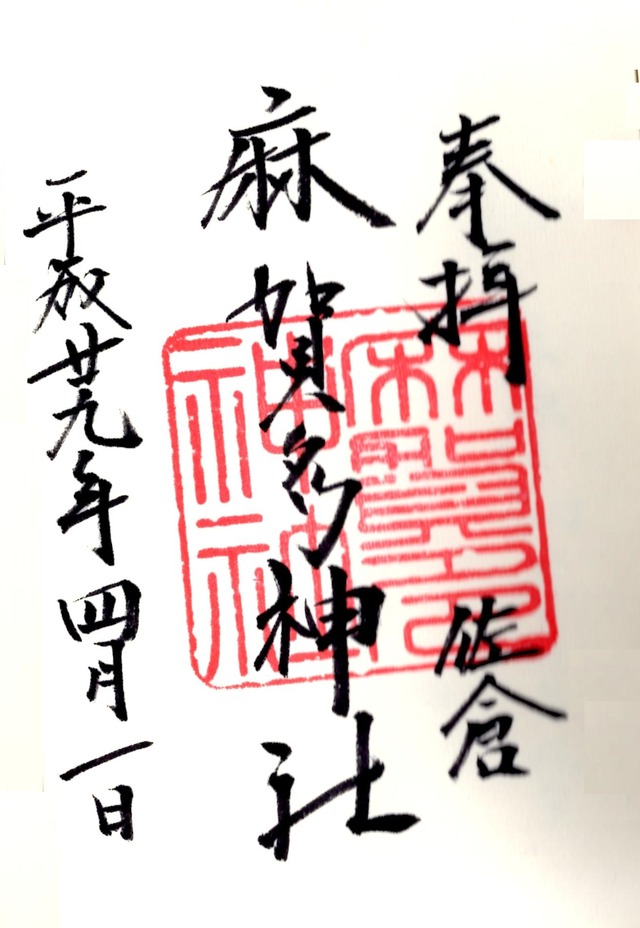 奉拝
佐倉
麻賀多神社
平成廿九年四月一日
麻賀多
神社